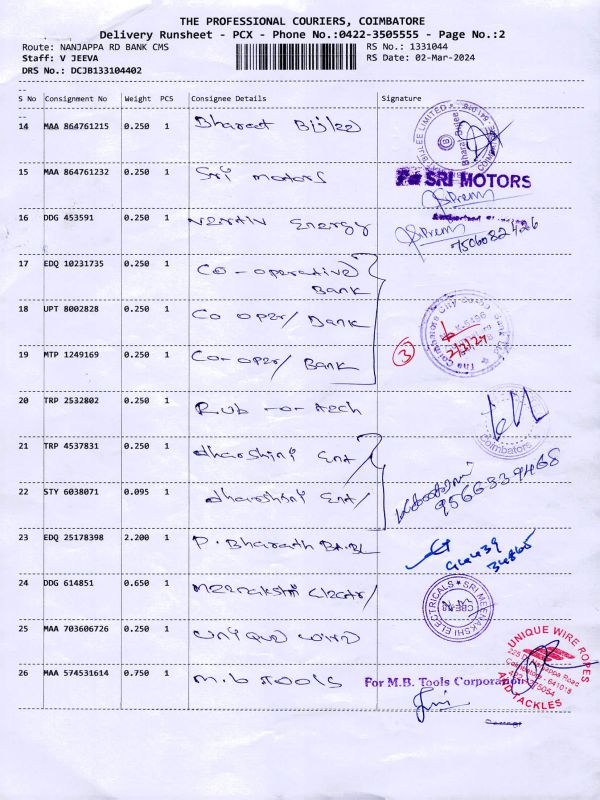 THE PROFESSIONAL COURIERS, COIMBATORE
Delivery Runsheet - PCX - Phone No.:0422-3505555 - Page No.:2
Route: NANJAPPA RD BANK CMS RS No.: 1331044
Staff: V JEEVA RS Date: 02-Mar-2024
DRS No.: DCJB133104402
S No Consignment No Weight PCS Consignee Details Signature
14 MAA 864761215 0.250 1 Bhareet Bijlee
BIJLEE LIMITED
15 MAA 864761232 0.250 1 Sri motors
For SRI MOTORS
Prem
16 DDG 453591 0.250 1 Energy
Prem 7506082426
17 EDQ 10231735 0.250 1 Co-operative
Bank
18 UPT 8002828 0.250 1 Co oper/ Bank
19 MTP 1249169 0.250 1 Co-oper/ Bank
3
2/3/24
20 TRP 2532802 0.250 1 Rub-o-tech
Coimbatore
21 TRP 4537831 0.250 1 dharshini Ent/
22 STY 6038071 0.095 1 dharshini Ent/
9566339468
23 EDQ 25178398 2.200 1 P. Bharath BA.BL
24 DDG 614851 0.650 1 meenakshi Electri/
SRI MEENAKSHI ELECTRICALS
25 MAA 703606726 0.250 1 unique wire
UNIQUE WIRE ROPES
AND TACKLES
26 MAA 574531614 0.750 1 M.b Tools
For M.B. Tools Corporation